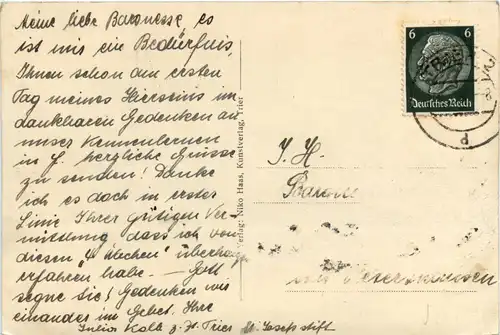 Meine liebe Baronesse, es
ist mir ein Bedürfnis,
Ihnen schon am ersten
Tag meines Hierseins im
dankbaren Gedenken an
unser Kennenlernen
in J. herzliche Grüsse
zu senden! Danke
ich es doch in erster
Linie Ihrer gütigen Ver-
mittlung dass ich von
diesem überhaupt
erfahren habe. — Gott
segne Sie! Gedenken wir
einander im Gebet. Ihre
z. Zt. Trier
Verlag: Niko Haas, Kunstverlag, Trier
6 6
Deutsches Reich
I. H.